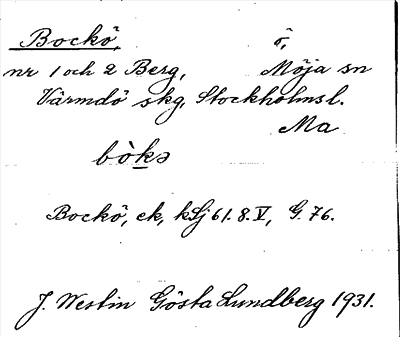 Bockö, ö,
nr 1 och 2 Berg, Möja sn
Värmdö skg, Stockholmsl.
Ma
bòkə
Bockö, ek, kLj 61.8.V, G. 76.
J. Westin Gösta Lundberg 1931.